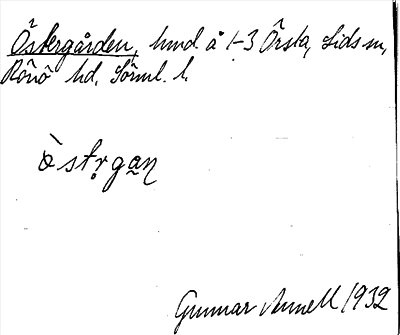 Östergården, hmd å 1-3 Örsta, Lids sn,
Rönö hd, Sörml. l.
òstr̥gan
Gunnar Annell 1932